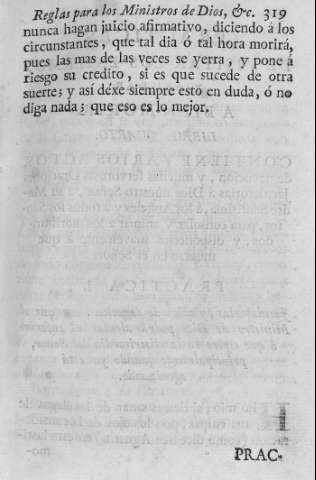 Reglas para los Ministros de Dios, &c. 319
nunca hagan juicio afirmativo, diciendo á los
circunstantes, que tal dia ó tal hora morirá,
pues las mas de las veces se yerra, y pone á
riesgo su credito, si es que sucede de otra
suerte; y así déxe siempre esto en duda, ó no
diga nada; que eso es lo mejor.
PRAC-